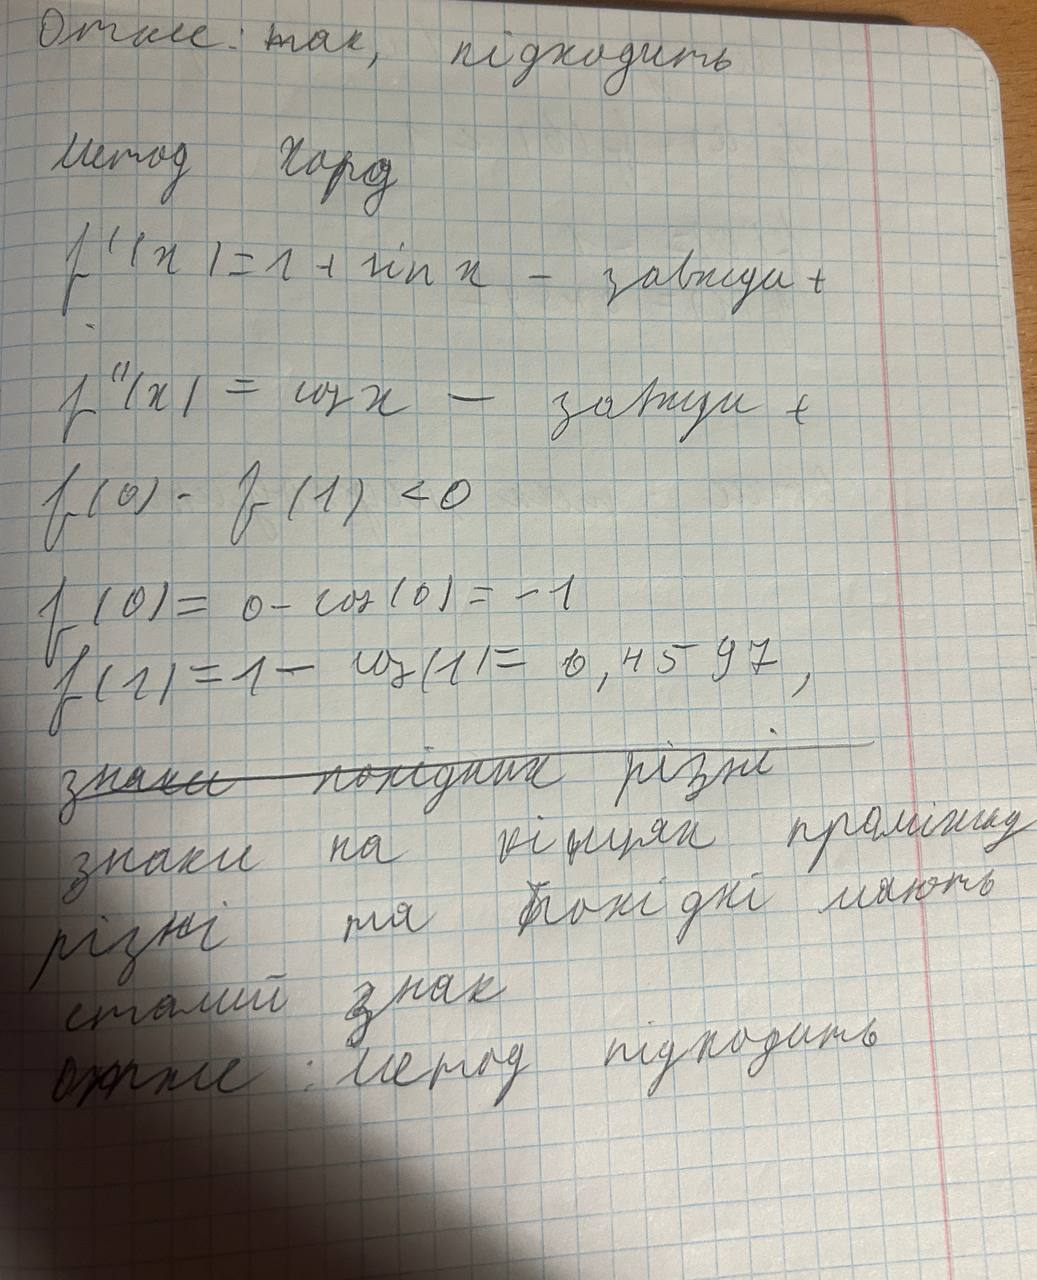 Отже: так, підходить
Метод Хорд
f'(x)=1+sin x - завжди +
f"(x) = cos x - завжди +
f(0) · f(1) <0
f(0)= 0-cos(0)= -1
f(1)=1- cos(1)= 0,4597,
знаки похідних різні
знаки на кінцях проміжку
різні та похідні мають
сталий знак
отже: метод підходить